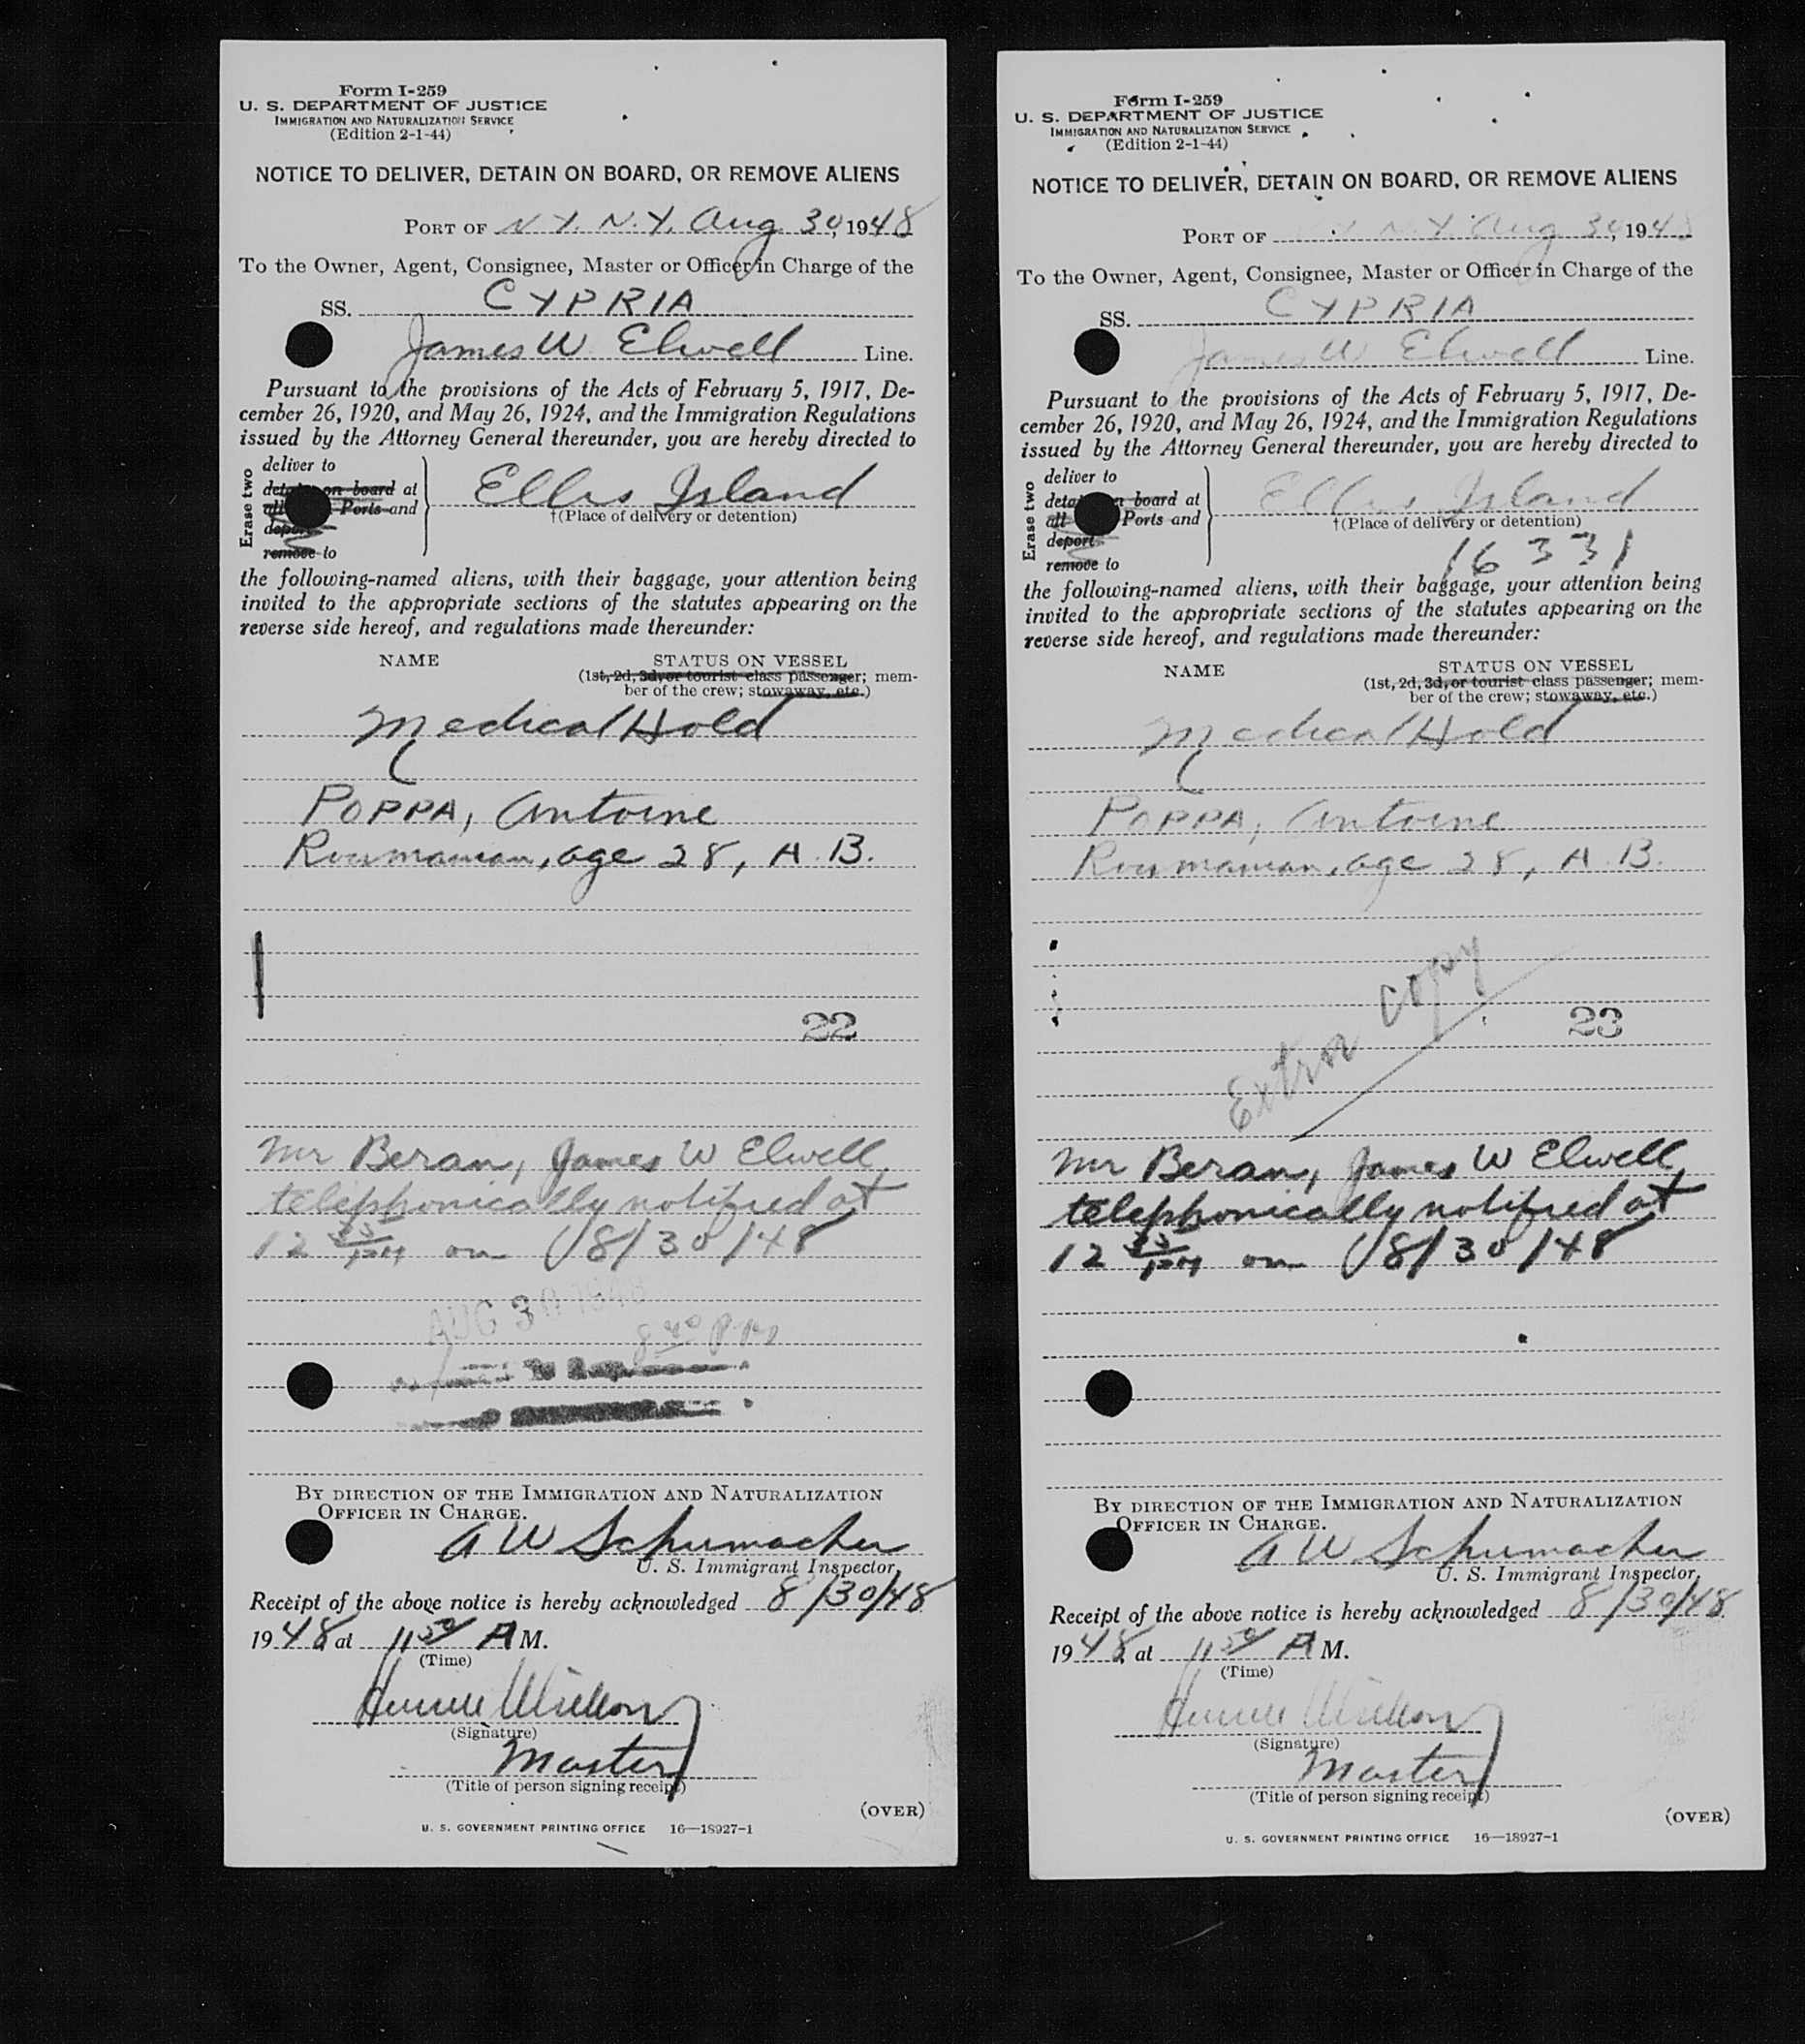 Form I-259
U. S. DEPARTMENT OF JUSTICE
IMMIGRATION AND NATURALIZATION SERVICE
(Edition 2-1-44)
NOTICE TO DELIVER, DETAIN ON BOARD, OR REMOVE ALIENS
PORT OF N.Y. N.Y. Aug 30, 1948
To the Owner, Agent, Consignee, Master or Officer in Charge of the
SS. CYPRIA
James W Elwell Line.
Pursuant to the provisions of the Acts of February 5, 1917, De-
cember 26, 1920, and May 26, 1924, and the Immigration Regulations
issued by the Attorney General thereunder, you are hereby directed to
Erase two
deliver to
on board at
all Ports and
remove to
Ellis Island
†(Place of delivery or detention)
the following-named aliens, with their baggage, your attention being
invited to the appropriate sections of the statutes appearing on the
reverse side hereof, and regulations made thereunder:
NAME STATUS ON VESSEL
(1st, 2d, 3d, or tourist class passenger; mem-
ber of the crew; stowaway, etc.)
Medical Hold
POPPA, Antoine
Roumanian, age 28, A.B.
22
Mr Beran, James W Elwell,
telephonically notified at
12 35 PM on 8/30/48
AUG 30 1948
8 40 P.M
BY DIRECTION OF THE IMMIGRATION AND NATURALIZATION
OFFICER IN CHARGE.
A W Schumacher
U. S. Immigrant Inspector.
Receipt of the above notice is hereby acknowledged 8/30/48
1948 at 11 50 A M.
(Time)
(Signature)
Master
(Title of person signing receipt)
(OVER)
U. S. GOVERNMENT PRINTING OFFICE 16—18927-1
Form I-259
U. S. DEPARTMENT OF JUSTICE
IMMIGRATION AND NATURALIZATION SERVICE
(Edition 2-1-44)
NOTICE TO DELIVER, DETAIN ON BOARD, OR REMOVE ALIENS
PORT OF N.Y. N.Y. Aug 30, 1948
To the Owner, Agent, Consignee, Master or Officer in Charge of the
SS. CYPRIA
James W Elwell Line.
Pursuant to the provisions of the Acts of February 5, 1917, De-
cember 26, 1920, and May 26, 1924, and the Immigration Regulations
issued by the Attorney General thereunder, you are hereby directed to
Erase two
deliver to
board at
all Ports and
deport
remove to
Ellis Island
†(Place of delivery or detention)
16331
the following-named aliens, with their baggage, your attention being
invited to the appropriate sections of the statutes appearing on the
reverse side hereof, and regulations made thereunder:
NAME STATUS ON VESSEL
(1st, 2d, 3d, or tourist class passenger; mem-
ber of the crew; stowaway, etc.)
Medical Hold
POPPA, Antoine
Roumanian, age 28, A.B.
Extra copy
23
Mr Beran, James W Elwell,
telephonically notified at
12 35 PM on 8/30/48
BY DIRECTION OF THE IMMIGRATION AND NATURALIZATION
OFFICER IN CHARGE.
A W Schumacher
U. S. Immigrant Inspector.
Receipt of the above notice is hereby acknowledged 8/30/48
1948 at 11 50 A M.
(Time)
(Signature)
Master
(Title of person signing receipt)
(OVER)
U. S. GOVERNMENT PRINTING OFFICE 16—18927-1